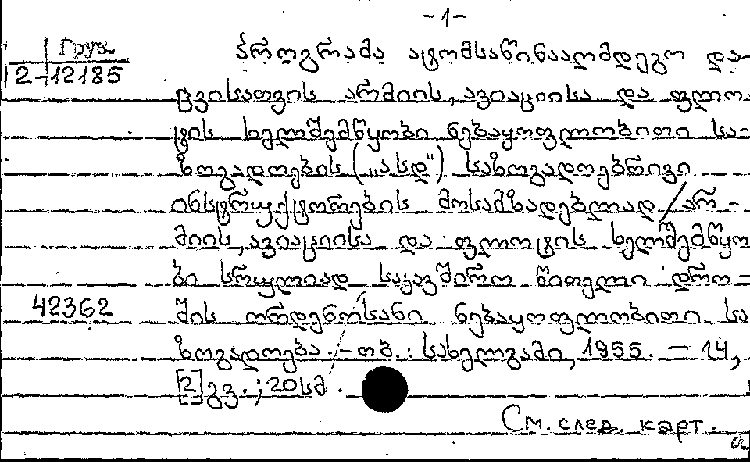 -1-
Груз.
2-12185
პროგრამა ატომსაწინააღმდეგო და-
ცვისათვის არმიის, ავიაციისა და ფლო-
ტის ხელშემწყობი ნებაყოფლობითი სა-
ზოგადოების („ასდ") საზოგადოებრივი
ინსტრუქტორების მოსამზადებლად / არ-
მიის, ავიაციისა და ფლოტის ხელშემწყო
ბი სრულიად საკავშირო წითელი დრო-
42362
შის ორდენოსანი ნებაყოფლობითი სა
ზოგადოება. - თბ.: სახელგამი, 1955. - 14,
[2] გვ.; 20 სმ.
См. след. карт.